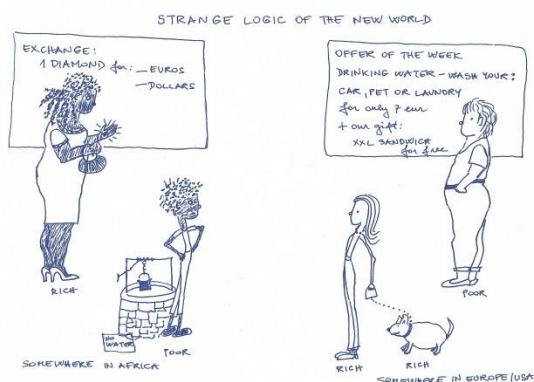 STRANGE LOGIC OF THE NEW WORLD
EXCHANGE:
1 DIAMOND for: — EUROS
— DOLLARS
RICH
NO
WATER
POOR
SOMEWHERE IN AFRICA
OFFER OF THE WEEK
DRINKING WATER - WASH YOUR:
CAR, PET OR LAUNDRY
for only 7 eur
+ our gift:
XXL SANDWICH
for free
POOR
RICH
RICH
SOMEWHERE IN EUROPE/USA